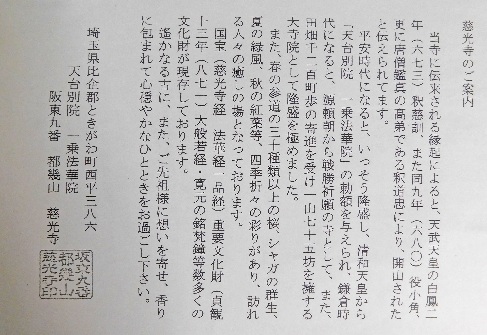 慈光寺のご案内
当寺に伝来される縁起によると、天武天皇の白鳳二
年（六七三）釈慈訓、また同九年（六八〇）役小角、
更に唐僧鑑真の高弟である釈道忠により、開山された
と伝えられてます。
平安時代になると、いっそう隆盛し、清和天皇から
「天台別院 一乗法華院」の勅額を与えられ、鎌倉時
代になると、源頼朝から戦勝祈願の寺として、また、
田畑千二百町歩の寄進を受け一山七十五坊を擁する
大寺院として隆盛を極めました。
また、春の参道の三十種類以上の桜、シャガの群生、
夏の緑風、秋の紅葉等、四季折々の彩りがあり、訪れ
る人々の癒しの場となっております。
国宝（慈光寺経 法華経一品経）重要文化財（貞観
十三年（八七一）大般若経・寛元の銘梵鐘等数多くの
文化財が現存しております。
遥かなる古に、また、ご先祖様に想いを寄せ、香り
に包まれて心穏やかなひとときをお過ごし下さい。
埼玉県比企郡ときがわ町西平三八六
天台別院 一乗法華院
阪東九番 都幾山 慈光寺
坂東九番
都幾山
慈光寺印